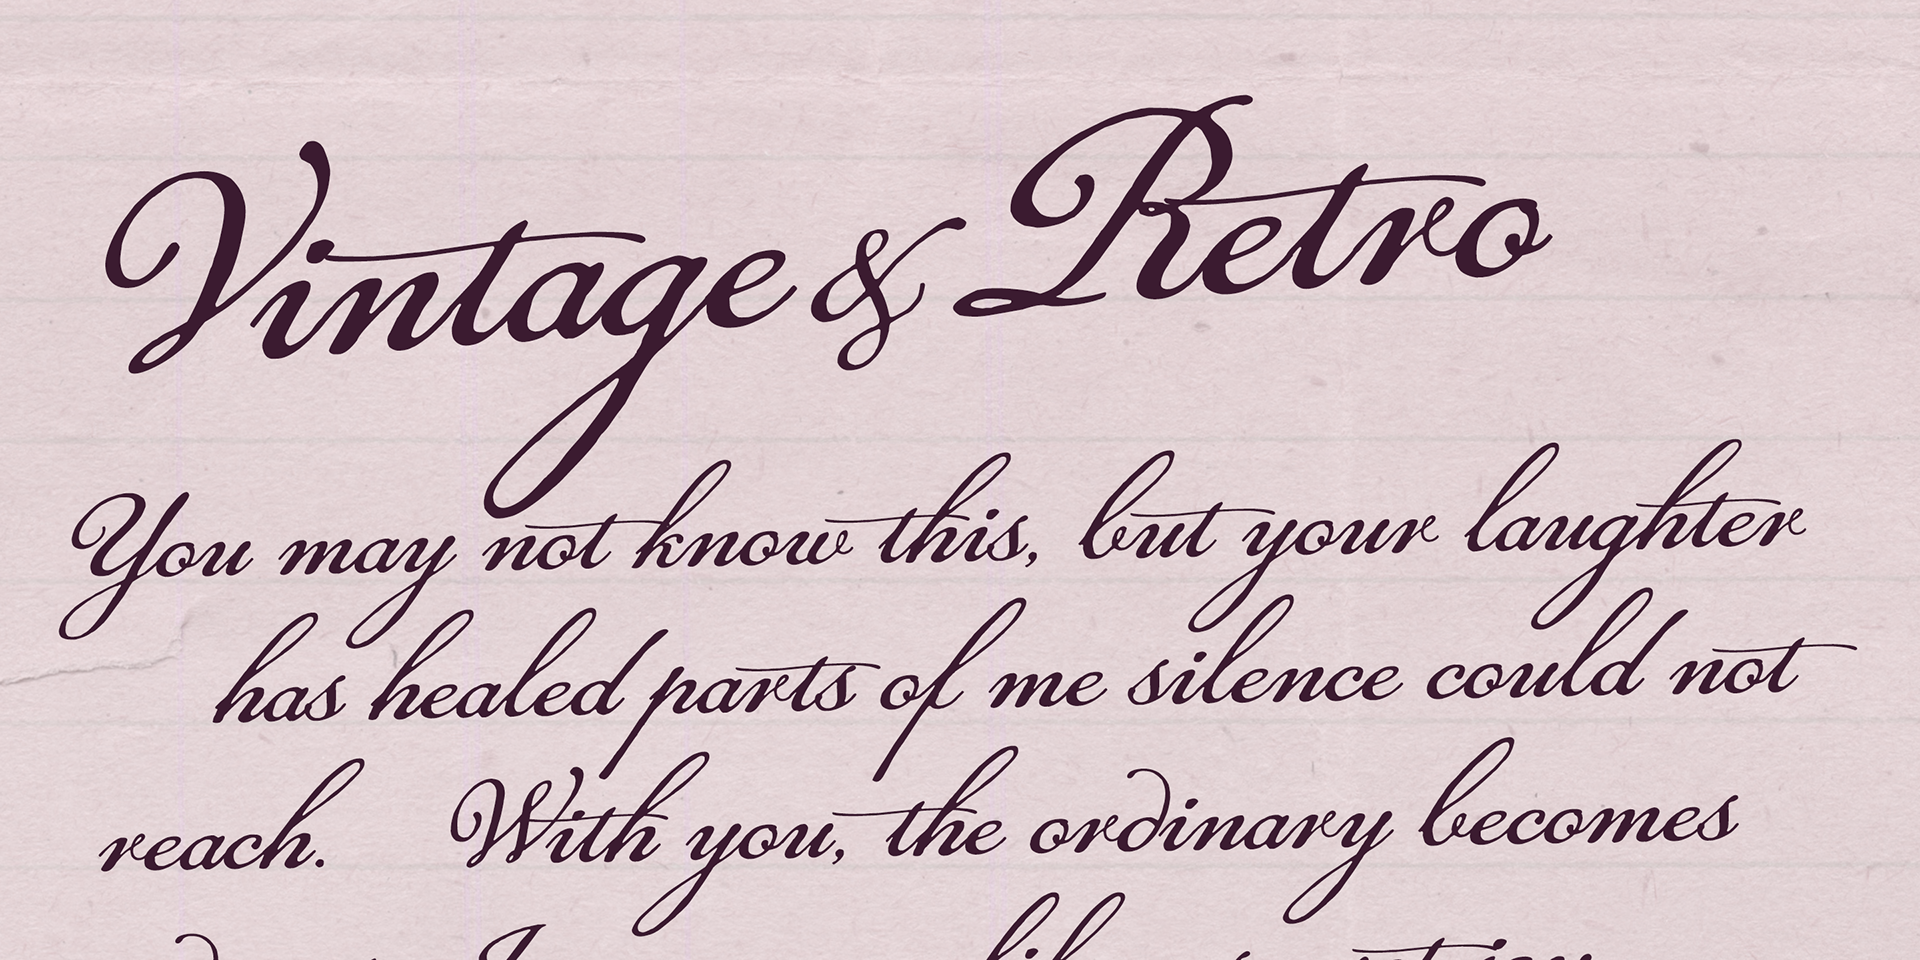 Vintage & Retro
You may not know this, but your laughter
has healed parts of me silence could not
reach. With you, the ordinary becomes